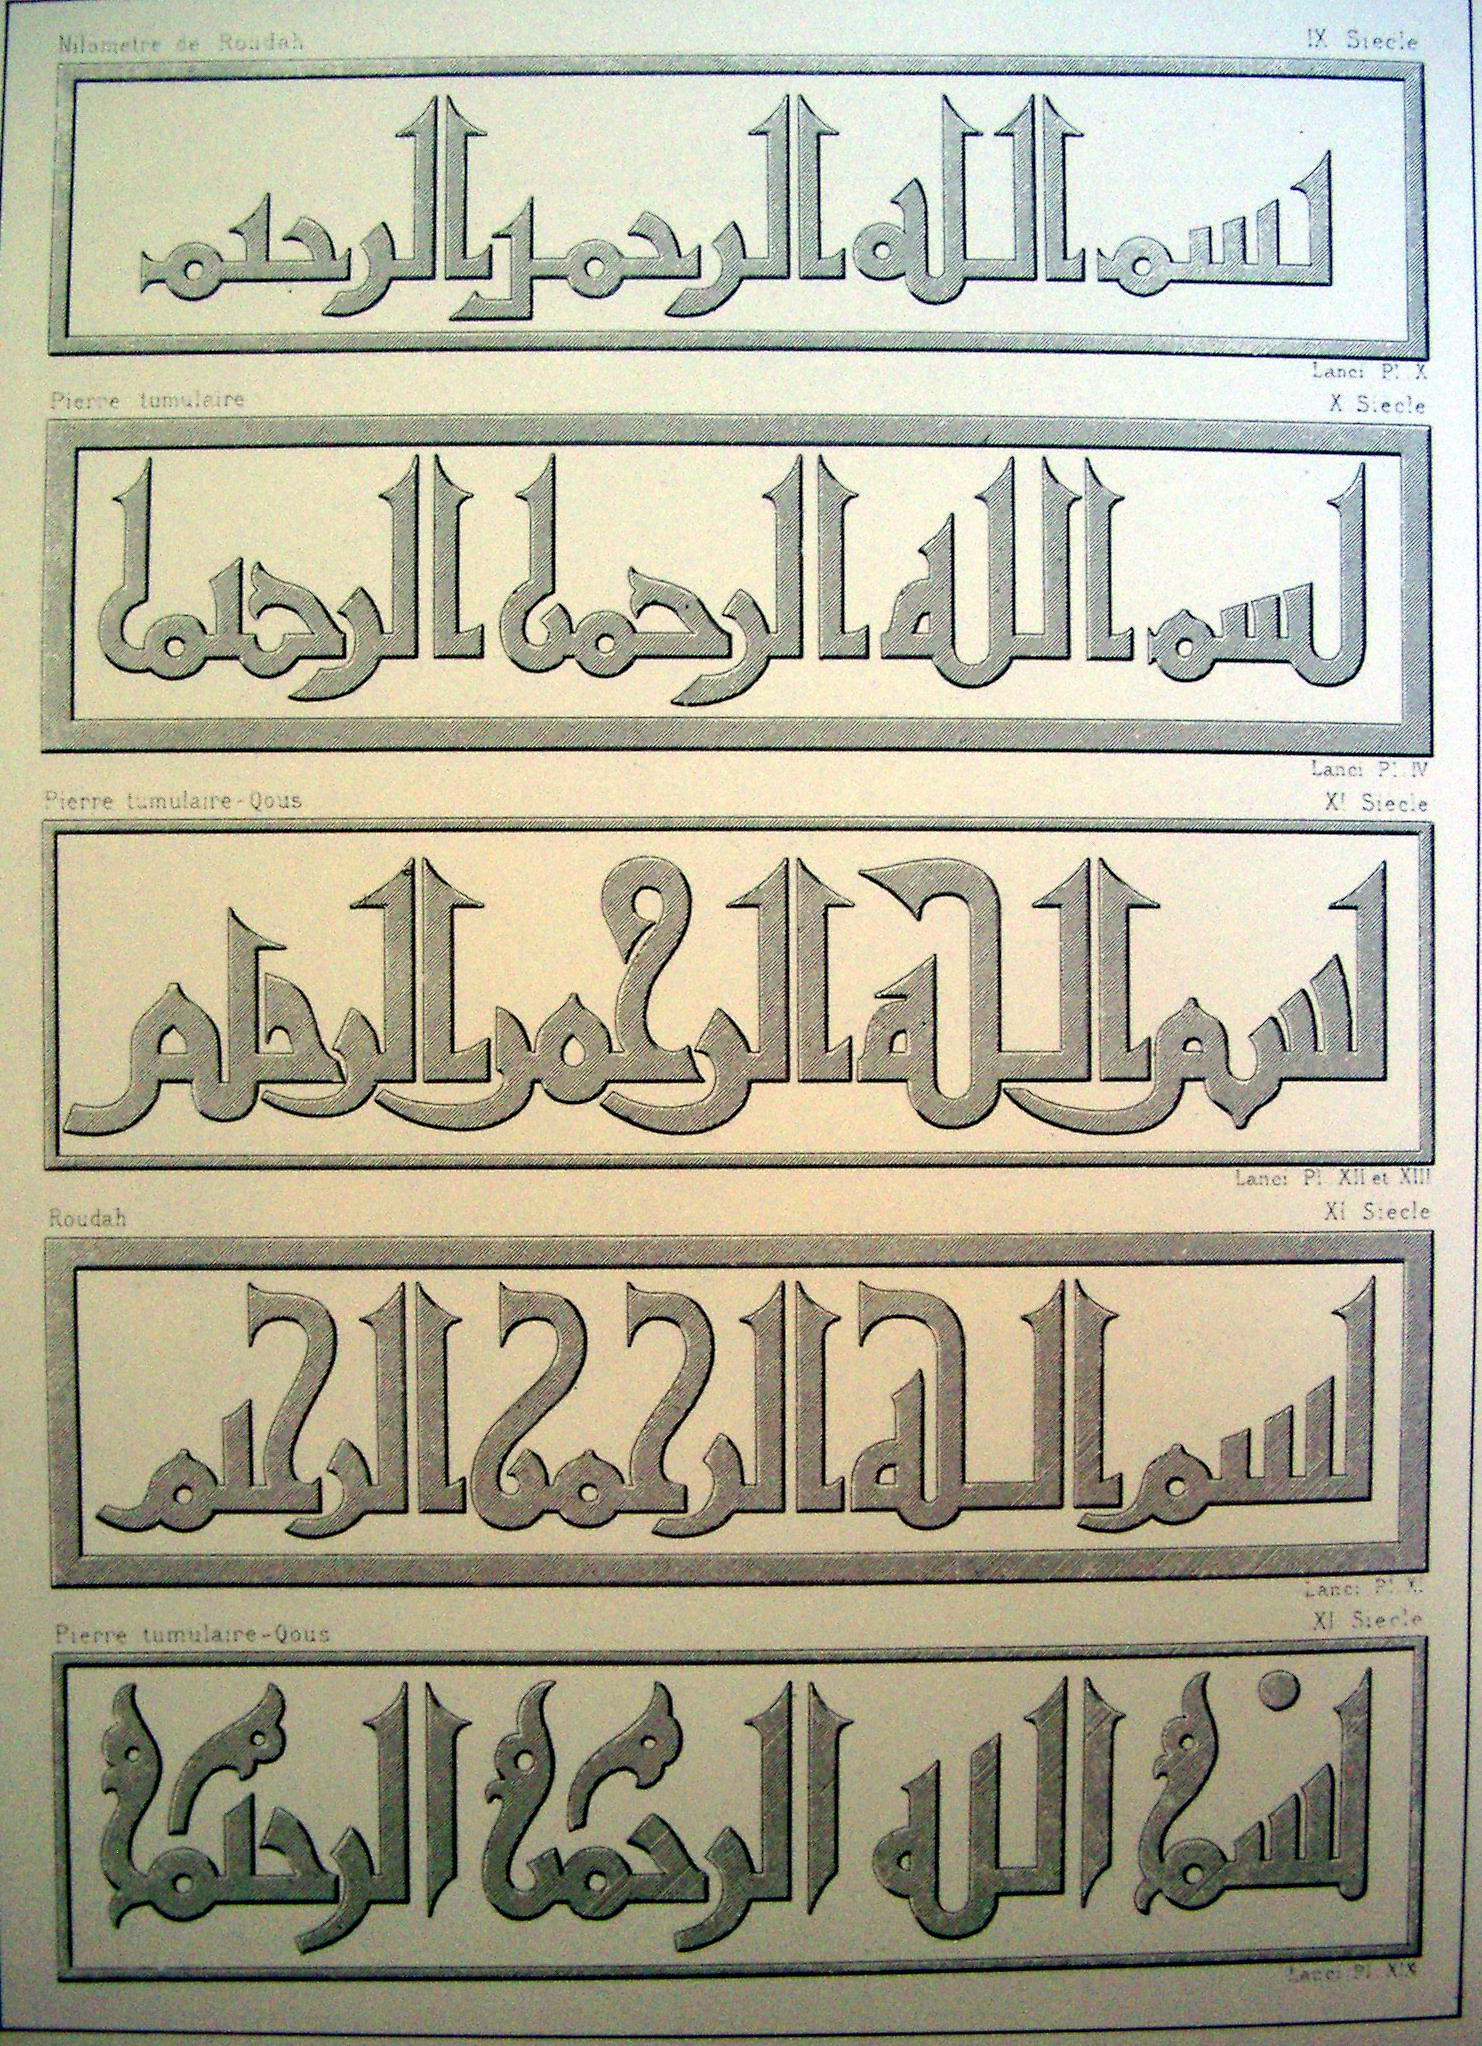 Nilometre de Roudah IX Siecle
بسم الله الرحمن الرحيم
Lanci Pl. X
Pierre tumulaire X Siecle
بسم الله الرحمن الرحيم
Lanci Pl. IV
Pierre tumulaire-Qous XI Siecle
بسم الله الرحمن الرحيم
Lanci Pl. XII et XIII
Roudah XI Siecle
بسم الله الرحمن الرحيم
Lanci Pl.
Pierre tumulaire-Qous XI Siecle
بسم الله الرحمن الرحيم
Lanci Pl. XIX